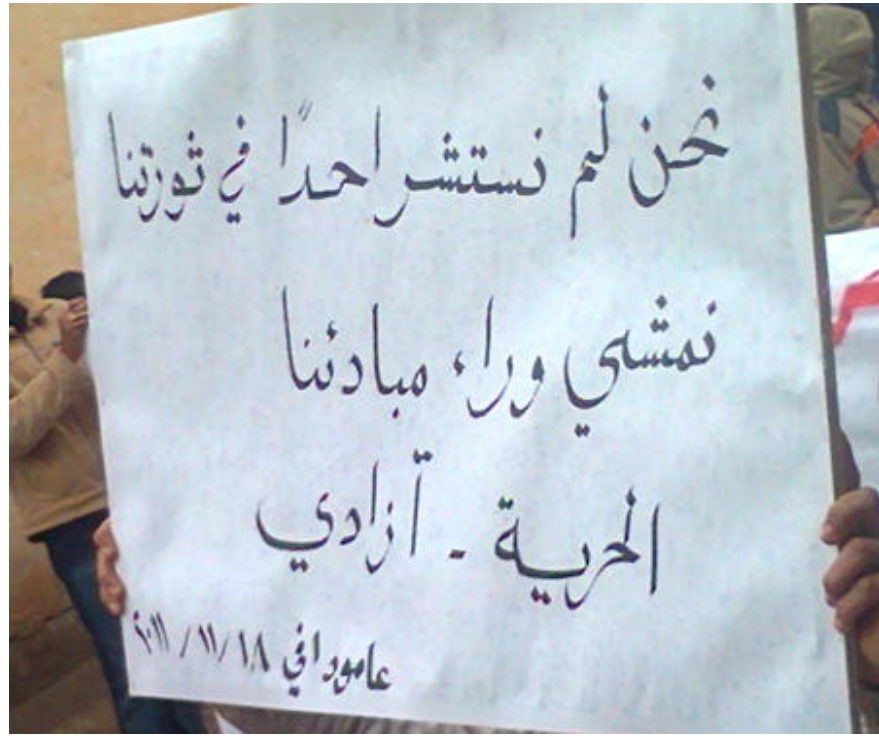 نحن لم نستشر احدًا في ثورتنا
نمشي وراء مبادئنا
الحرية - آزادي
عامودا في ١٨ / ١١ / ٢٠١١